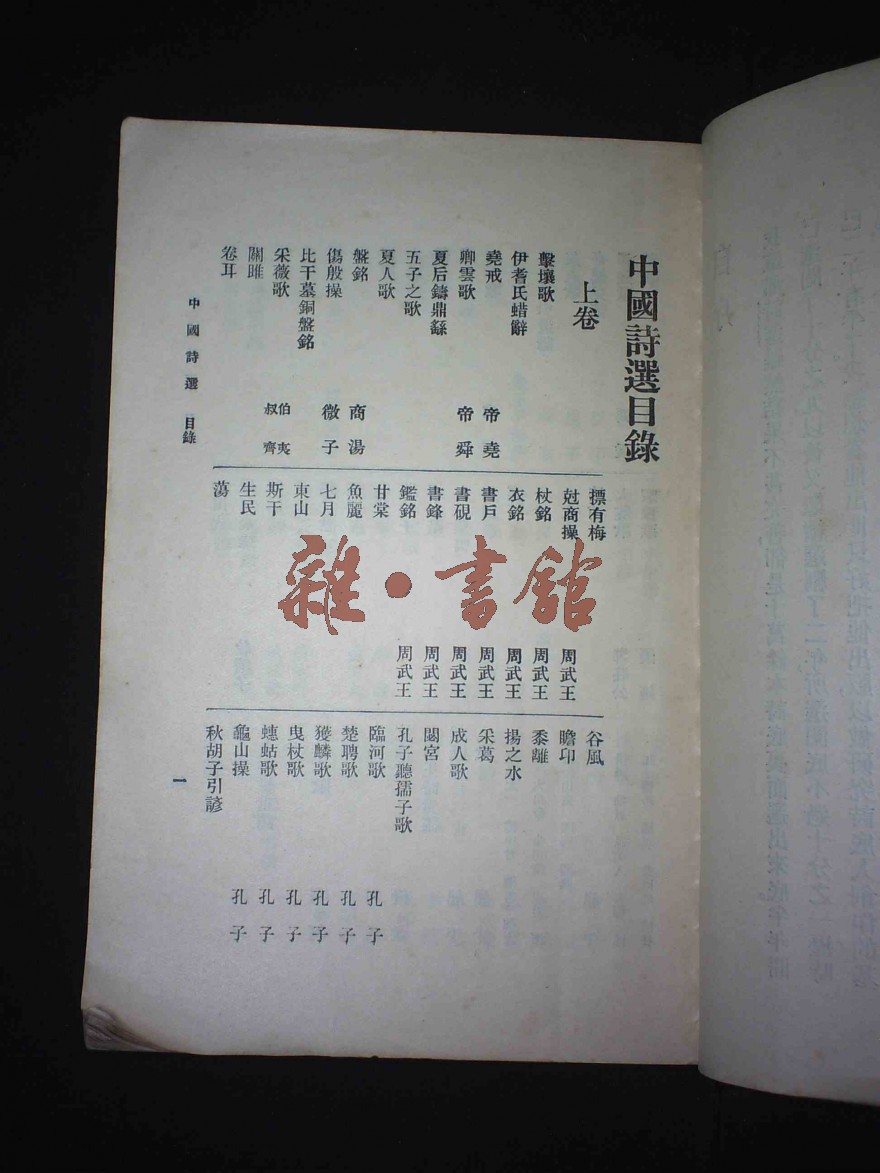 中國詩選目錄
上卷
擊壤歌
伊耆氏蜡辭
堯戒 帝堯
卿雲歌 帝舜
夏后鑄鼎繇
五子之歌
夏人歌
盤銘 商湯
傷殷操 微子
比干墓銅盤銘
采薇歌 伯夷 叔齊
關雎
卷耳
摽有梅
尅商操 周武王
杖銘 周武王
衣銘 周武王
書戶 周武王
書硯 周武王
書鋒 周武王
鑑銘 周武王
甘棠
魚麗
七月
東山
斯干
生民
蕩
谷風
瞻卬
黍離
揚之水
采葛
成人歌
閟宮
孔子聽孺子歌
臨河歌 孔子
楚聘歌 孔子
獲麟歌 孔子
曳杖歌 孔子
蟪蛄歌 孔子
龜山操 孔子
秋胡子引諺
中國詩選 目錄
一
雜·書館